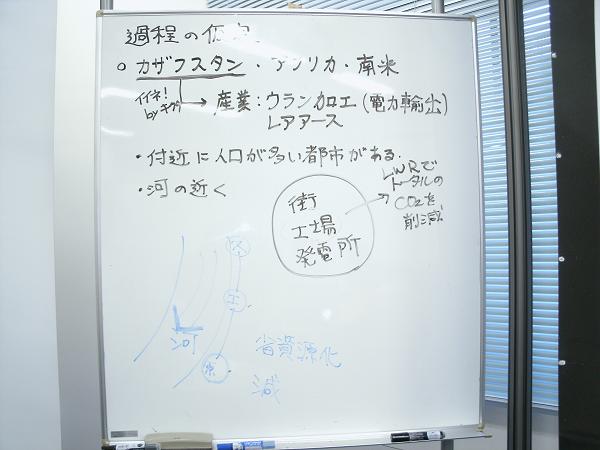 過程の仮定
○ カザフスタン・アフリカ・南米
イイネ!
by キグチ
→ 産業:ウラン加工(電力輸出)
レアアース
・付近に人口が多い都市がある.
・河の近く
街
工場
発電所
LWRで
トータルの
CO₂を
削減
工
河
省資源化
減